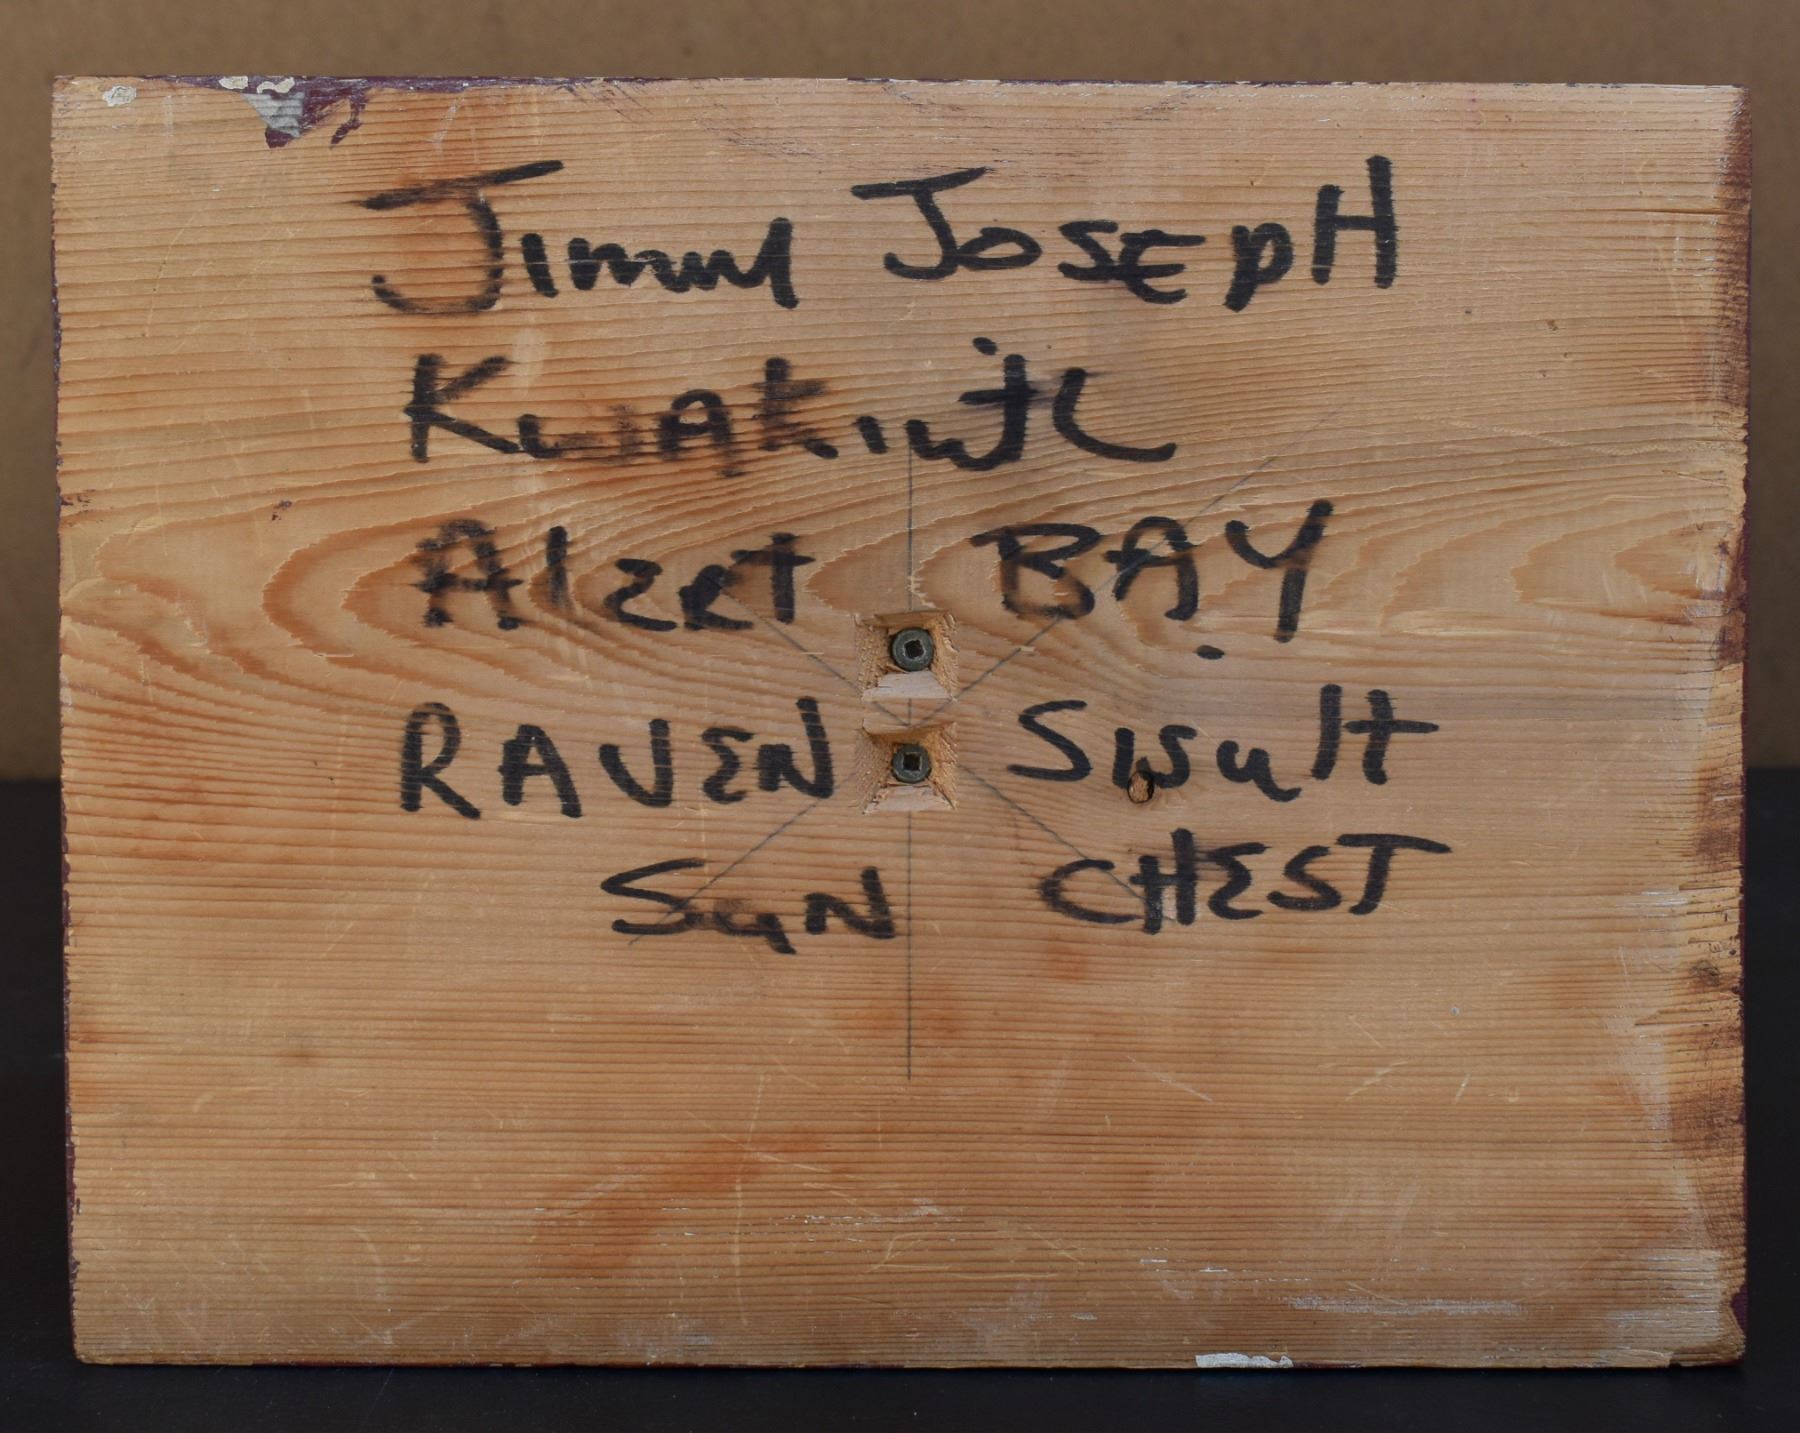 Jimmy JOSEPH
KwAkiutL
AlErt BAY
RAVEN Sisult
SuN CHEST